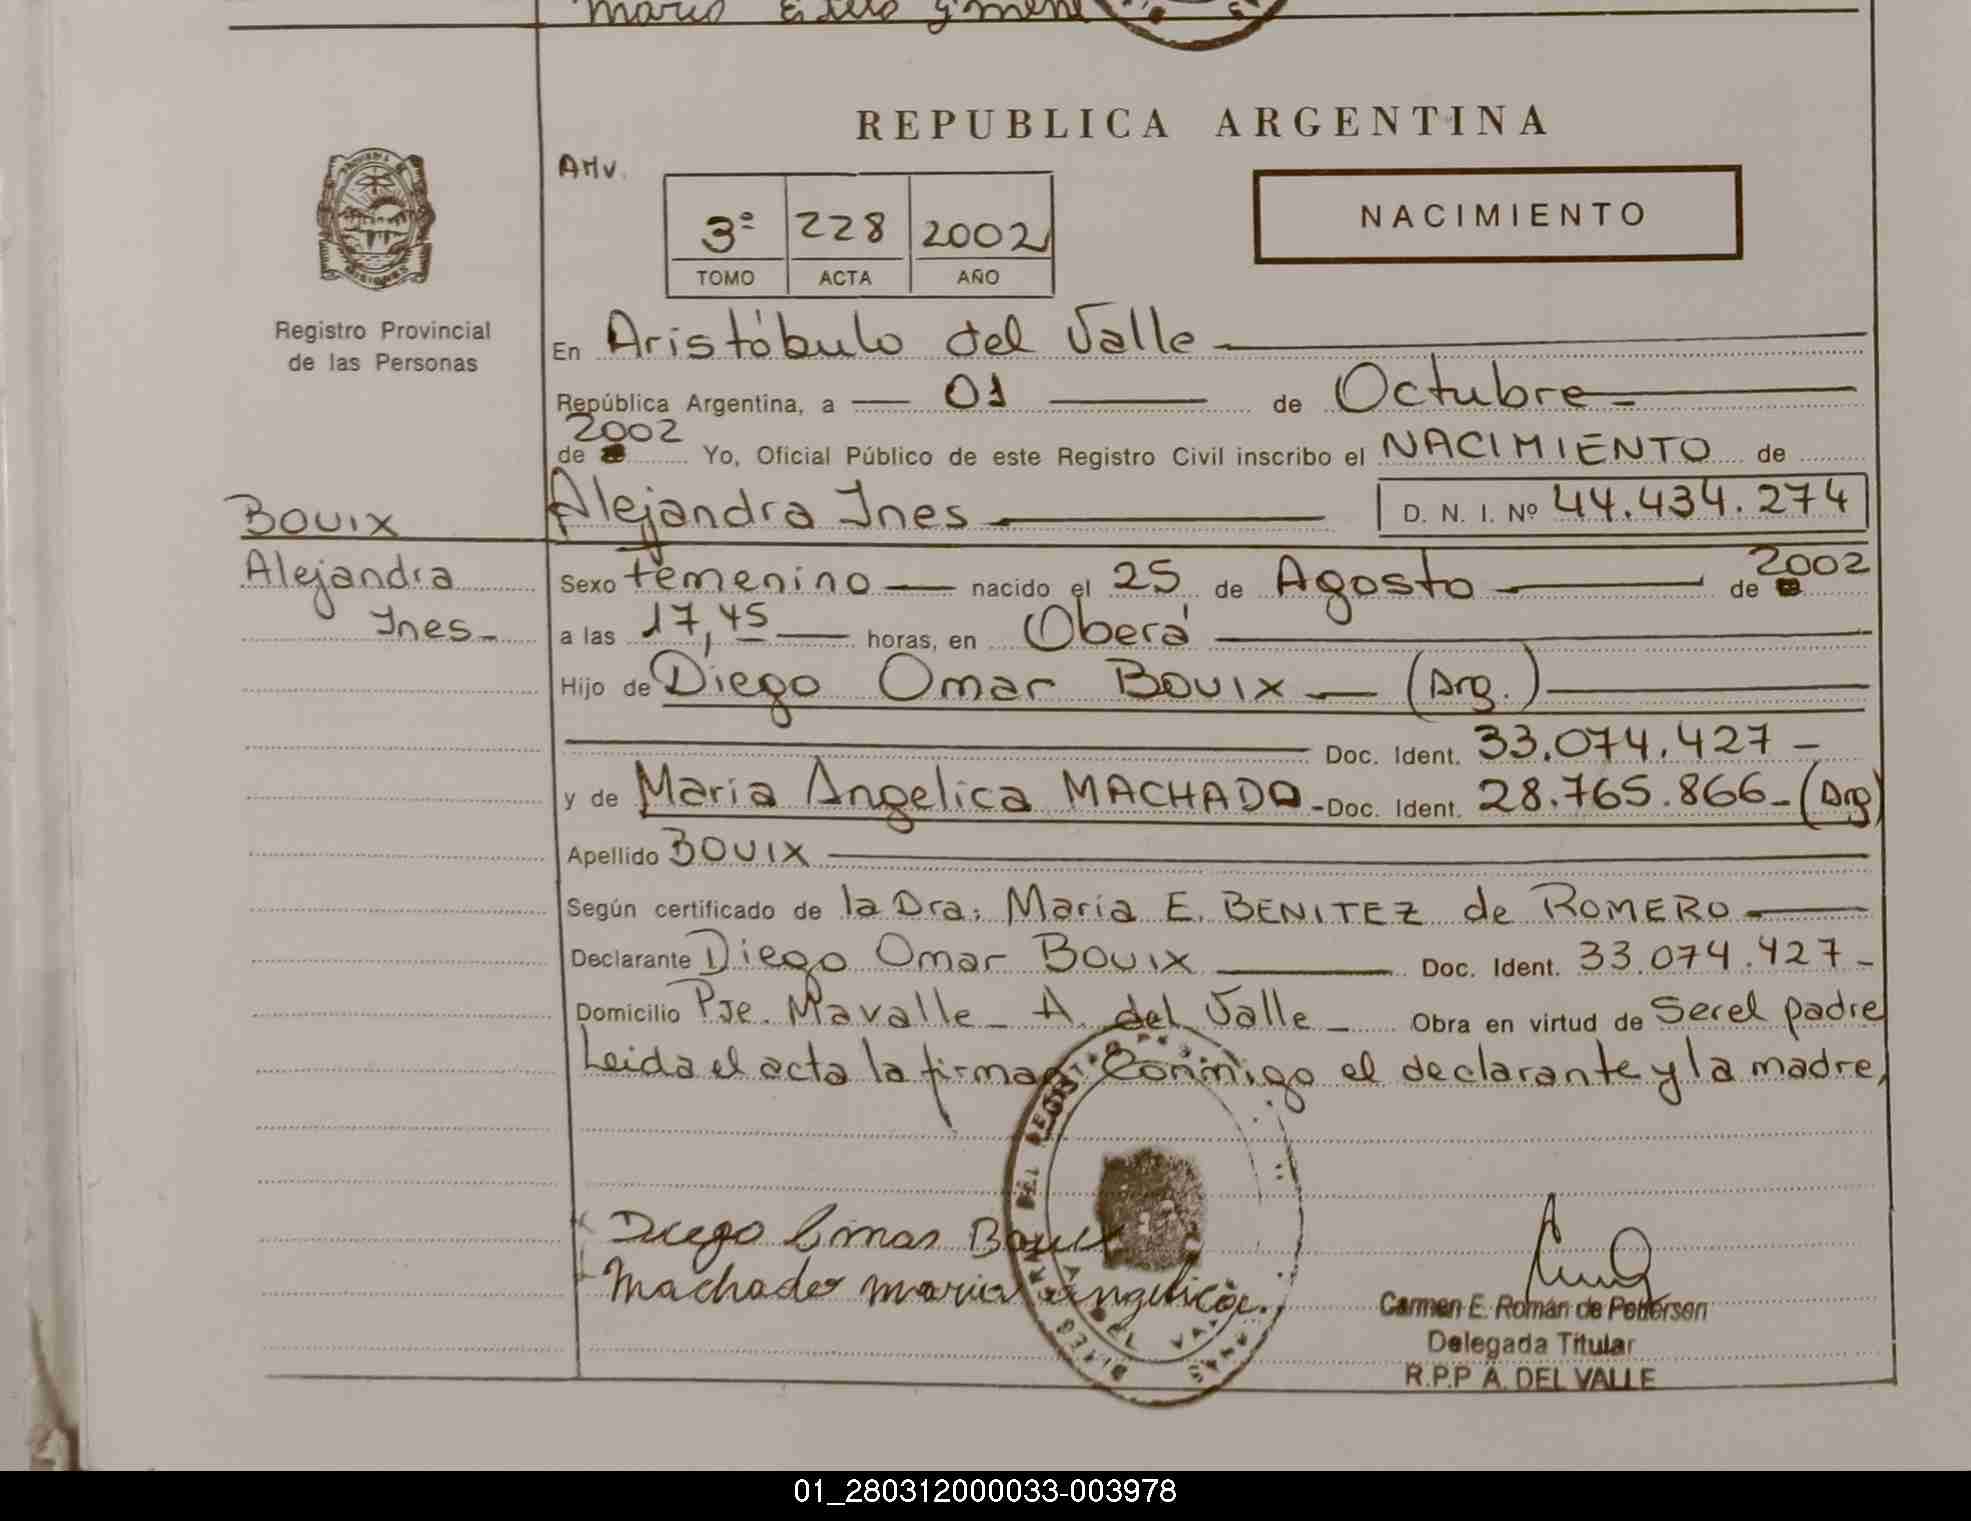 REPUBLICA ARGENTINA
AMV.
3º 228 2002
TOMO ACTA AÑO
NACIMIENTO
Registro Provincial
de las Personas
En Aristóbulo del Valle
República Argentina, a 01 de Octubre
2002
de Yo, Oficial Público de este Registro Civil inscribo el NACIMIENTO de
Alejandra Ines D. N. I. Nº 44.434.274
BOUIX
Alejandra
Ines
Sexo femenino nacido el 25 de Agosto de 2002
a las 17,45 horas, en Oberá
Hijo de Diego Omar BOUIX (Arg.)
Doc. Ident. 33.074.427
y de Maria Angelica MACHADO Doc. Ident. 28.765.866 (Arg)
Apellido BOUIX
Según certificado de la Dra. Maria E. BENITEZ de ROMERO
Declarante Diego Omar BOUIX Doc. Ident. 33.074.427
Domicilio Pje. Mavalle A. del Valle Obra en virtud de Ser el padre
Leida el acta la firman Conmigo el declarante y la madre,
Diego Omar Bouix
Machado maria angelica.
Carmen E. Román de Pettersen
Delegada Titular
R.P.P A. DEL VALLE
01_280312000033-003978